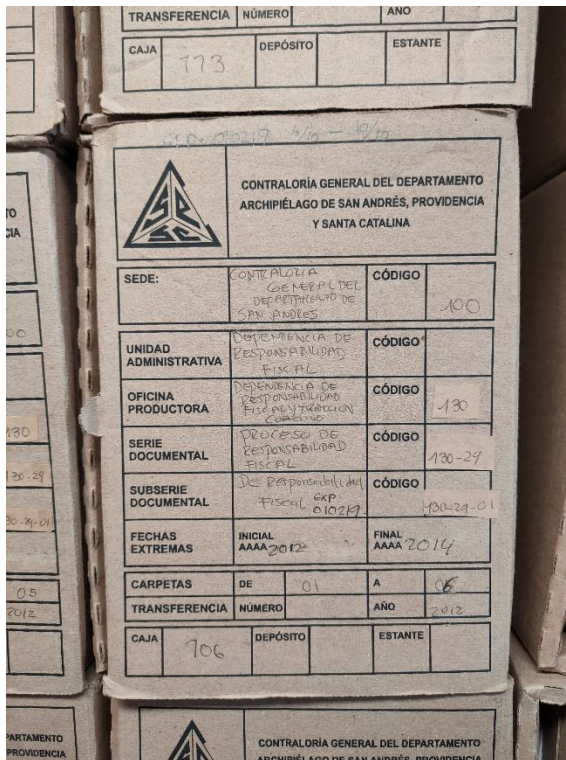 TRANSFERENCIA NÚMERO AÑO
CAJA 773 DEPÓSITO ESTANTE
CONTRALORÍA GENERAL DEL DEPARTAMENTO
ARCHIPIÉLAGO DE SAN ANDRÉS, PROVIDENCIA
Y SANTA CATALINA
SEDE: CONTRALORIA GENERAL DEL DEPARTAMENTO DE SAN ANDRES CÓDIGO 100
UNIDAD ADMINISTRATIVA DEPENDENCIA DE RESPONSABILIDAD FISCAL CÓDIGO
OFICINA PRODUCTORA DEPENDENCIA DE RESPONSABILIDAD FISCAL Y JURISDICCION COACTIVA CÓDIGO 130
SERIE DOCUMENTAL PROCESO DE RESPONSABILIDAD FISCAL CÓDIGO 130-29
SUBSERIE DOCUMENTAL De Responsabilidad Fiscal EXP. 010219 CÓDIGO 130-29-01
FECHAS EXTREMAS INICIAL AAAA 2012 FINAL AAAA 2014
CARPETAS DE 01 A 06
TRANSFERENCIA NÚMERO AÑO 2012
CAJA 706 DEPÓSITO ESTANTE
130
130-29
30-29-01
05
2012
PARTAMENTO
PROVIDENCIA
CONTRALORÍA GENERAL DEL DEPARTAMENTO
ARCHIPIÉLAGO DE SAN ANDRÉS, PROVIDENCIA